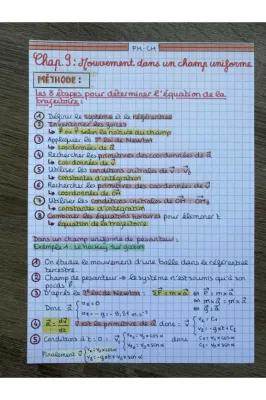 PH-CH
Chap 9: Mouvement dans un champ uniforme
MÉTHODE:
Les 8 étapes pour déterminer l'équation de la
trajectoire:
① Définir le système et le référentiel
② Inventorier les forces
↳ P ou F selon la nature du champ
③ Appliquer la 2nd loi de Newton
↳ coordonnées de a
④ Rechercher les primitives des coordonnées de a
↳ coordonnées de v
⑤ Utiliser les conditions initiales de v:
↳ constantes d'intégration
⑥ Rechercher les primitives des coordonnées de v
↳ coordonnées de OM
⑦ Utiliser les conditions initiales de OM:
↳ constantes d'intégration
⑧ Combiner les équations horaires pour éliminer t
↳ équation de la trajectoire
Dans un champ uniforme de pesanteur:
Exemple: le hockey sur gazon
① On étudie le mouvement d'une balle dans le référentiel
terrestre.
② Champ de pesanteur → le système n'est soumis qu'à son
poids
③ D'après la 2nd loi de Newton ΣF = m×a ⇔ P = m×a
⇔ m×g = m×a
⇔ g = a
Donc a { ax = 0
ay = -g = -9,81 m.s⁻²
④ a = dv/dt v est la primitive de a donc: v { vx = C1
vy = -gt + C2
⑤ Conditions à t = 0: v0 { v0x = v0 × cos α
v0y = v0 × sin α
Finalement v { vx = v0 × cos α
vy = -g×t + v0 × sin α